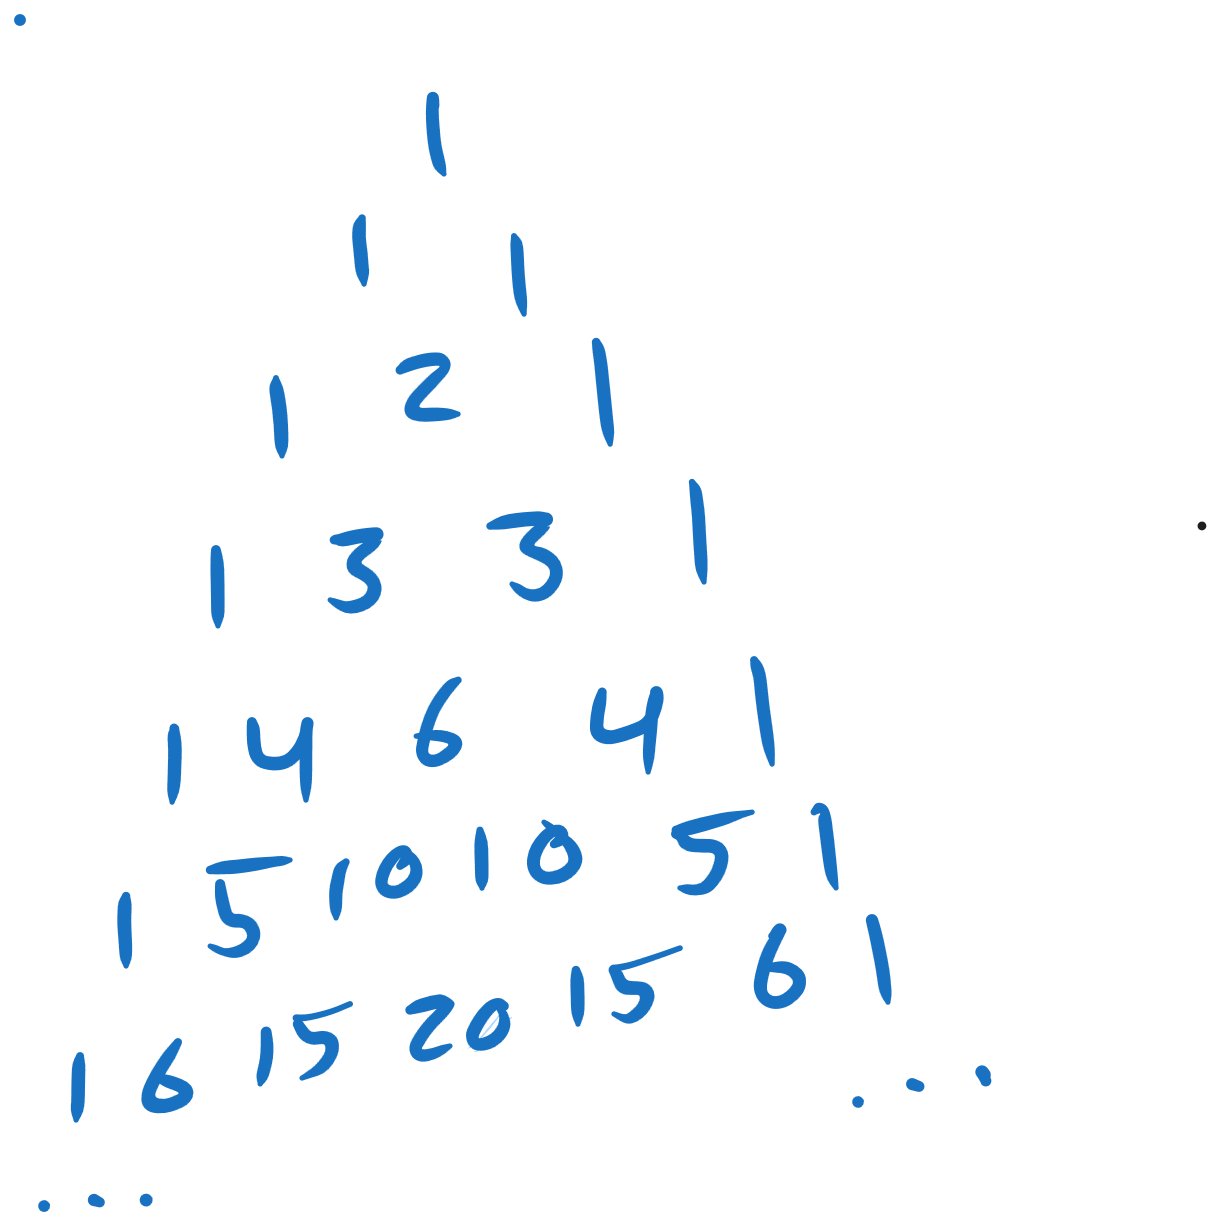 1
1 1
1 2 1
1 3 3 1
1 4 6 4 1
1 5 10 10 5 1
1 6 15 20 15 6 1
...
...